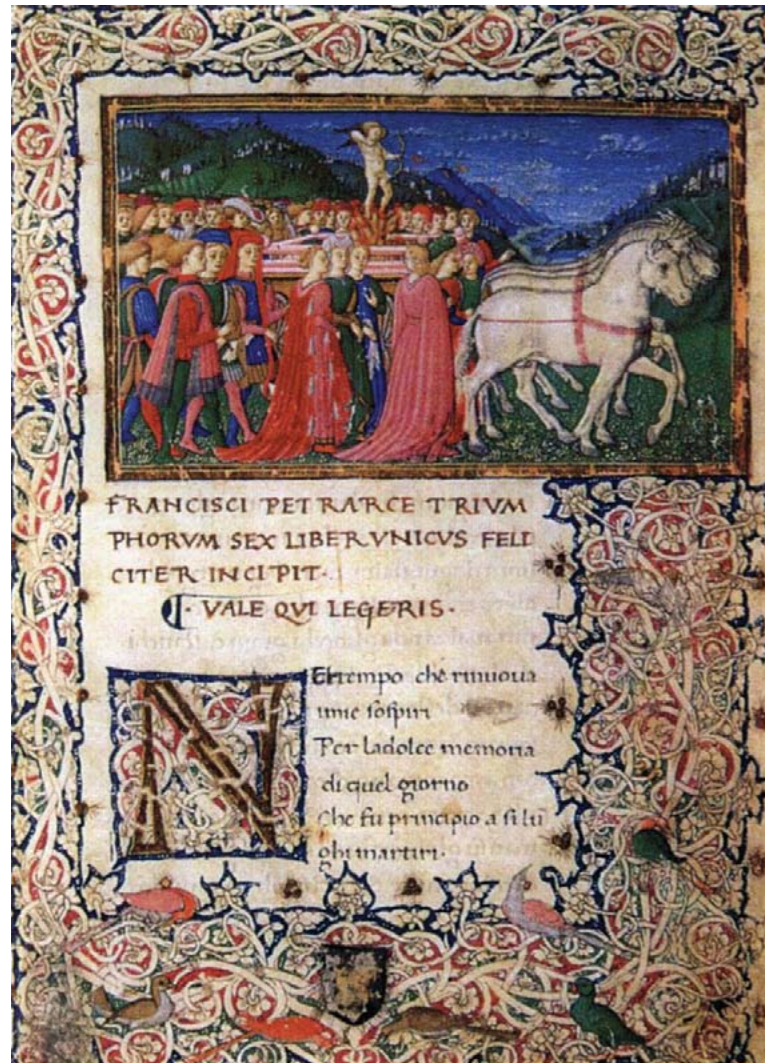 FRANCISCI PETRARCE TRIVM
PHORVM SEX LIBER VNICUS FELI
CITER INCIPIT·
· VALE QVI LEGERIS ·
NEl tempo che rinuoua
imie sospiri
Per ladolce memoria
di quel giorno
Che fu principio a si lū
ghi martiri·